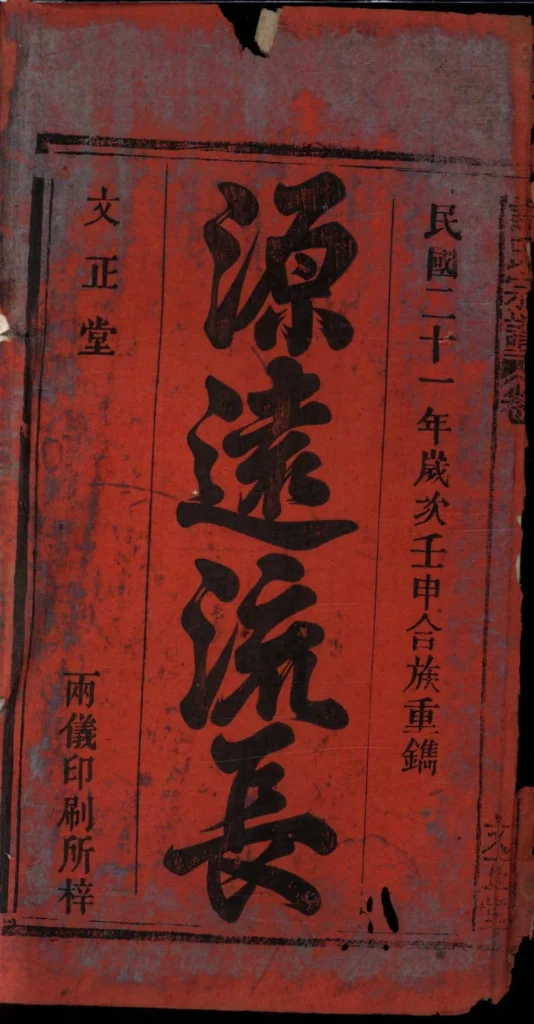 民國二十一年歲次壬申合族重鐫
源遠流長
文正堂
兩儀印刷所梓